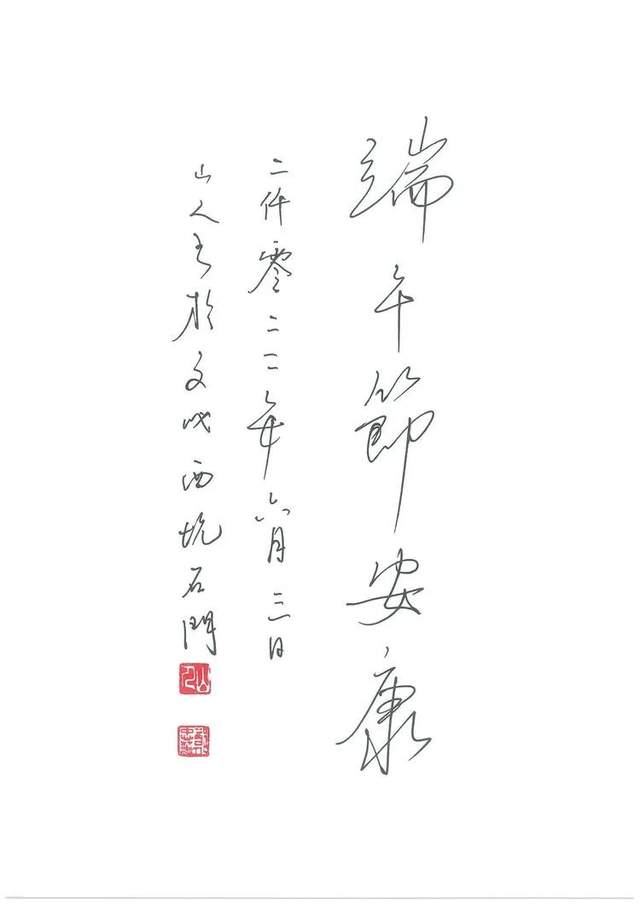 端午節安康
二仟零二二年六月三日
山人书於文成西坑石門